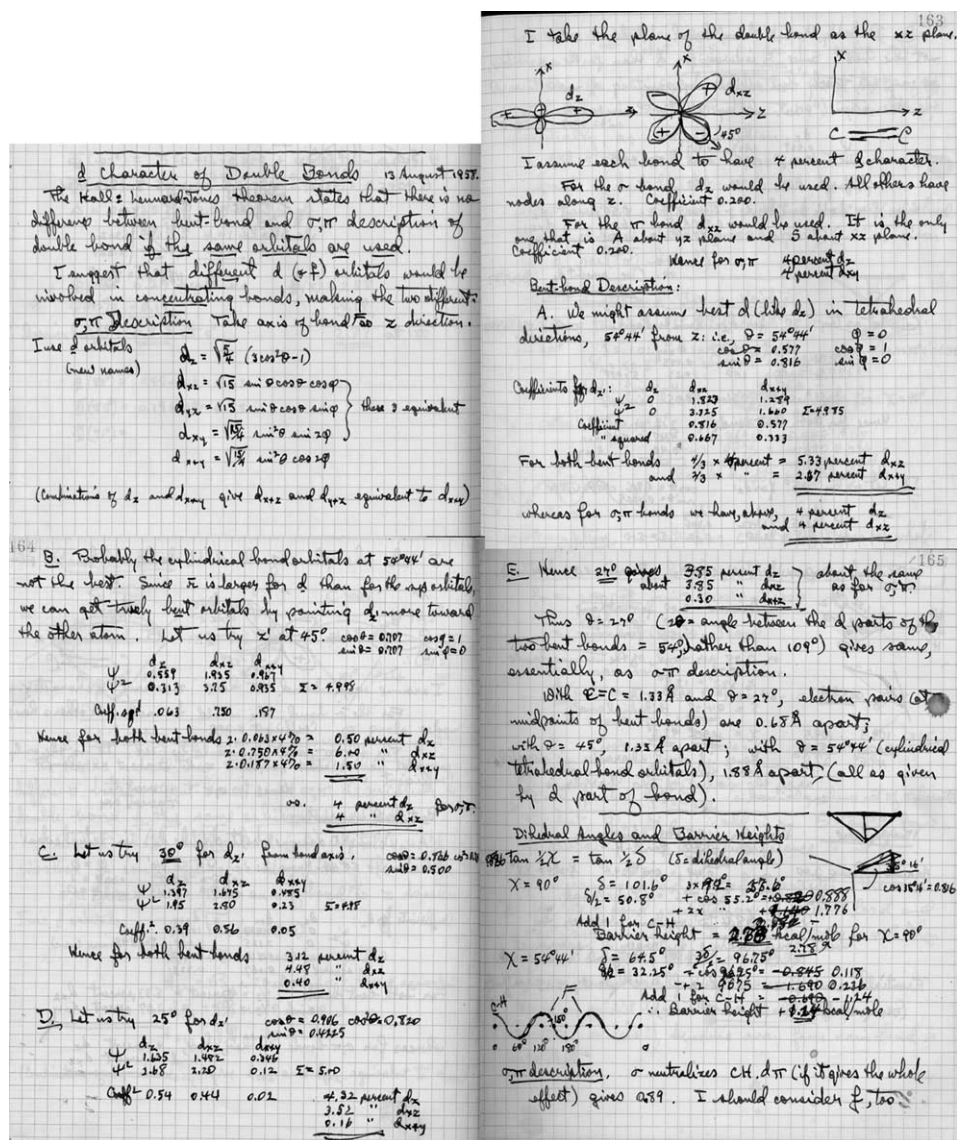 d Character of Double Bonds 13 August 1957.
The Hall & Lennard-Jones theorem states that there is no
difference between bent-bond and σ,π description of
double bond if the same orbitals are used.
I suggest that different d (& f) orbitals would be
involved in concentrating bonds, making the two different.
σ,π Description Take axis of bond as z direction.
I use d orbitals
(new names)
d_z = √5/4 (3cos²θ-1)
d_xz = √15 sinθ cosθ cosφ
d_yz = √15 sinθ cosθ sinφ
d_xy = √15/4 sin²θ sin 2φ
these 3 equivalent
d_x+y = √15/4 sin²θ cos 2φ
(Combinations of d_z and d_x+y give d_x+z and d_y+z equivalent to d_x+y)
163
I take the plane of the double bond as the xz plane.
x d_z z
x d_xz z 45°
x z
C=C
I assume each bond to have 4 percent d character.
For the σ bond, d_z would be used. All others have
nodes along z. Coefficient 0.200.
For the π bond d_xz would be used. It is the only
one that is A about yz plane and S about xz plane.
Coefficient 0.200.
Hence for σ,π 4 percent d_z
4 percent d_xy
Bent-bond Description:
A. We might assume best d (like d_z) in tetrahedral
directions, 54°44' from z: i.e., θ = 54°44' φ = 0
cosθ = 0.577 cosφ = 1
sinθ = 0.816 sinφ = 0
Coefficients for d_z': d_z d_xz d_x+y
ψ 0 1.823 1.289
ψ² 0 3.325 1.660 Σ=4.985
Coefficient 0.816 0.577
" squared 0.667 0.333
For both bent bonds 4/3 × 4 percent = 5.33 percent d_xz
and 2/3 × " = 2.67 percent d_x+y
whereas for σ,π bonds we have, above, 4 percent d_z
and 4 percent d_xz
164
B. Probably the cylindrical bond orbitals at 54°44' are
not the best. Since r̄ is larger for d than for the sp orbitals,
we can get truly bent orbitals by pointing d_z more toward
the other atom. Let us try z' at 45°. cosθ = 0.707 cosφ = 1
sinθ = 0.707 sinφ = 0
d_z d_xz d_x+y
ψ 0.559 1.935 0.967
ψ² 0.313 3.75 0.935 Σ = 4.998
Coeff. sqd .063 .750 .187
Hence for both bent bonds 2·0.063×4% = 0.50 percent d_z
2·0.750×4% = 6.00 " d_xz
2·0.187×4% = 1.50 " d_x+y
vs. 4 percent d_z for σ,π
4 " d_xz
C. Let us try 30° for d_z' from bond axis. cosθ = 0.866
sinθ = 0.500
d_z d_xz d_x+y
ψ 1.397 1.675 0.485
ψ² 1.95 2.80 0.23 Σ=4.98
Coeff.² 0.39 0.56 0.05
Hence for both bent bonds 3.12 percent d_z
4.48 " d_xz
0.40 " d_x+y
D. Let us try 25° for d_z' cosθ = 0.906 cos²θ = 0.820
sinθ = 0.4225
d_z d_xz d_x+y
ψ 1.635 1.482 0.346
ψ² 2.68 2.20 0.12 Σ = 5.00
Coeff² 0.54 0.44 0.02 4.32 percent d_z
3.52 " d_xz
0.16 " d_x+y
165
E. Hence 27° gives 3.85 percent d_z
about 3.85 " d_xz
0.30 " d_x+z
about the same
as for σ,π.
Thus θ = 27° (2θ = angle between the d parts of the
two bent bonds = 54°, rather than 109°) gives same,
essentially, as σπ description.
With C=C = 1.33 Å and θ = 27°, electron pairs (at
midpoints of bent bonds) are 0.68 Å apart;
with θ = 45°, 1.33 Å apart; with θ = 54°44' (cylindrical
tetrahedral bond orbitals), 1.88 Å apart, (all as given
by d part of bond).
Dihedral Angles and Barrier Heights
tan ½X = tan ½δ (δ = dihedral angle)
cos 35°16' = 0.816
X = 90° δ = 101.6°
δ/2 = 50.8° + cos 55.2° 0.888
+ 2x 1.776
Add 1 for C-H
Barrier height = 2.78 kcal/mole for X = 90°
X = 54°44' δ = 64.5° = 96.75°
δ/2 = 32.25° 0.118
0.236
Add 1 for C-H = -1.24
∴ Barrier height kcal/mole
C-H
150°
0 60° 120° 180° 0
σ,π description. σ neutralizes CH. dπ (if it gives the whole
effect) gives 0.89. I should consider f, too.